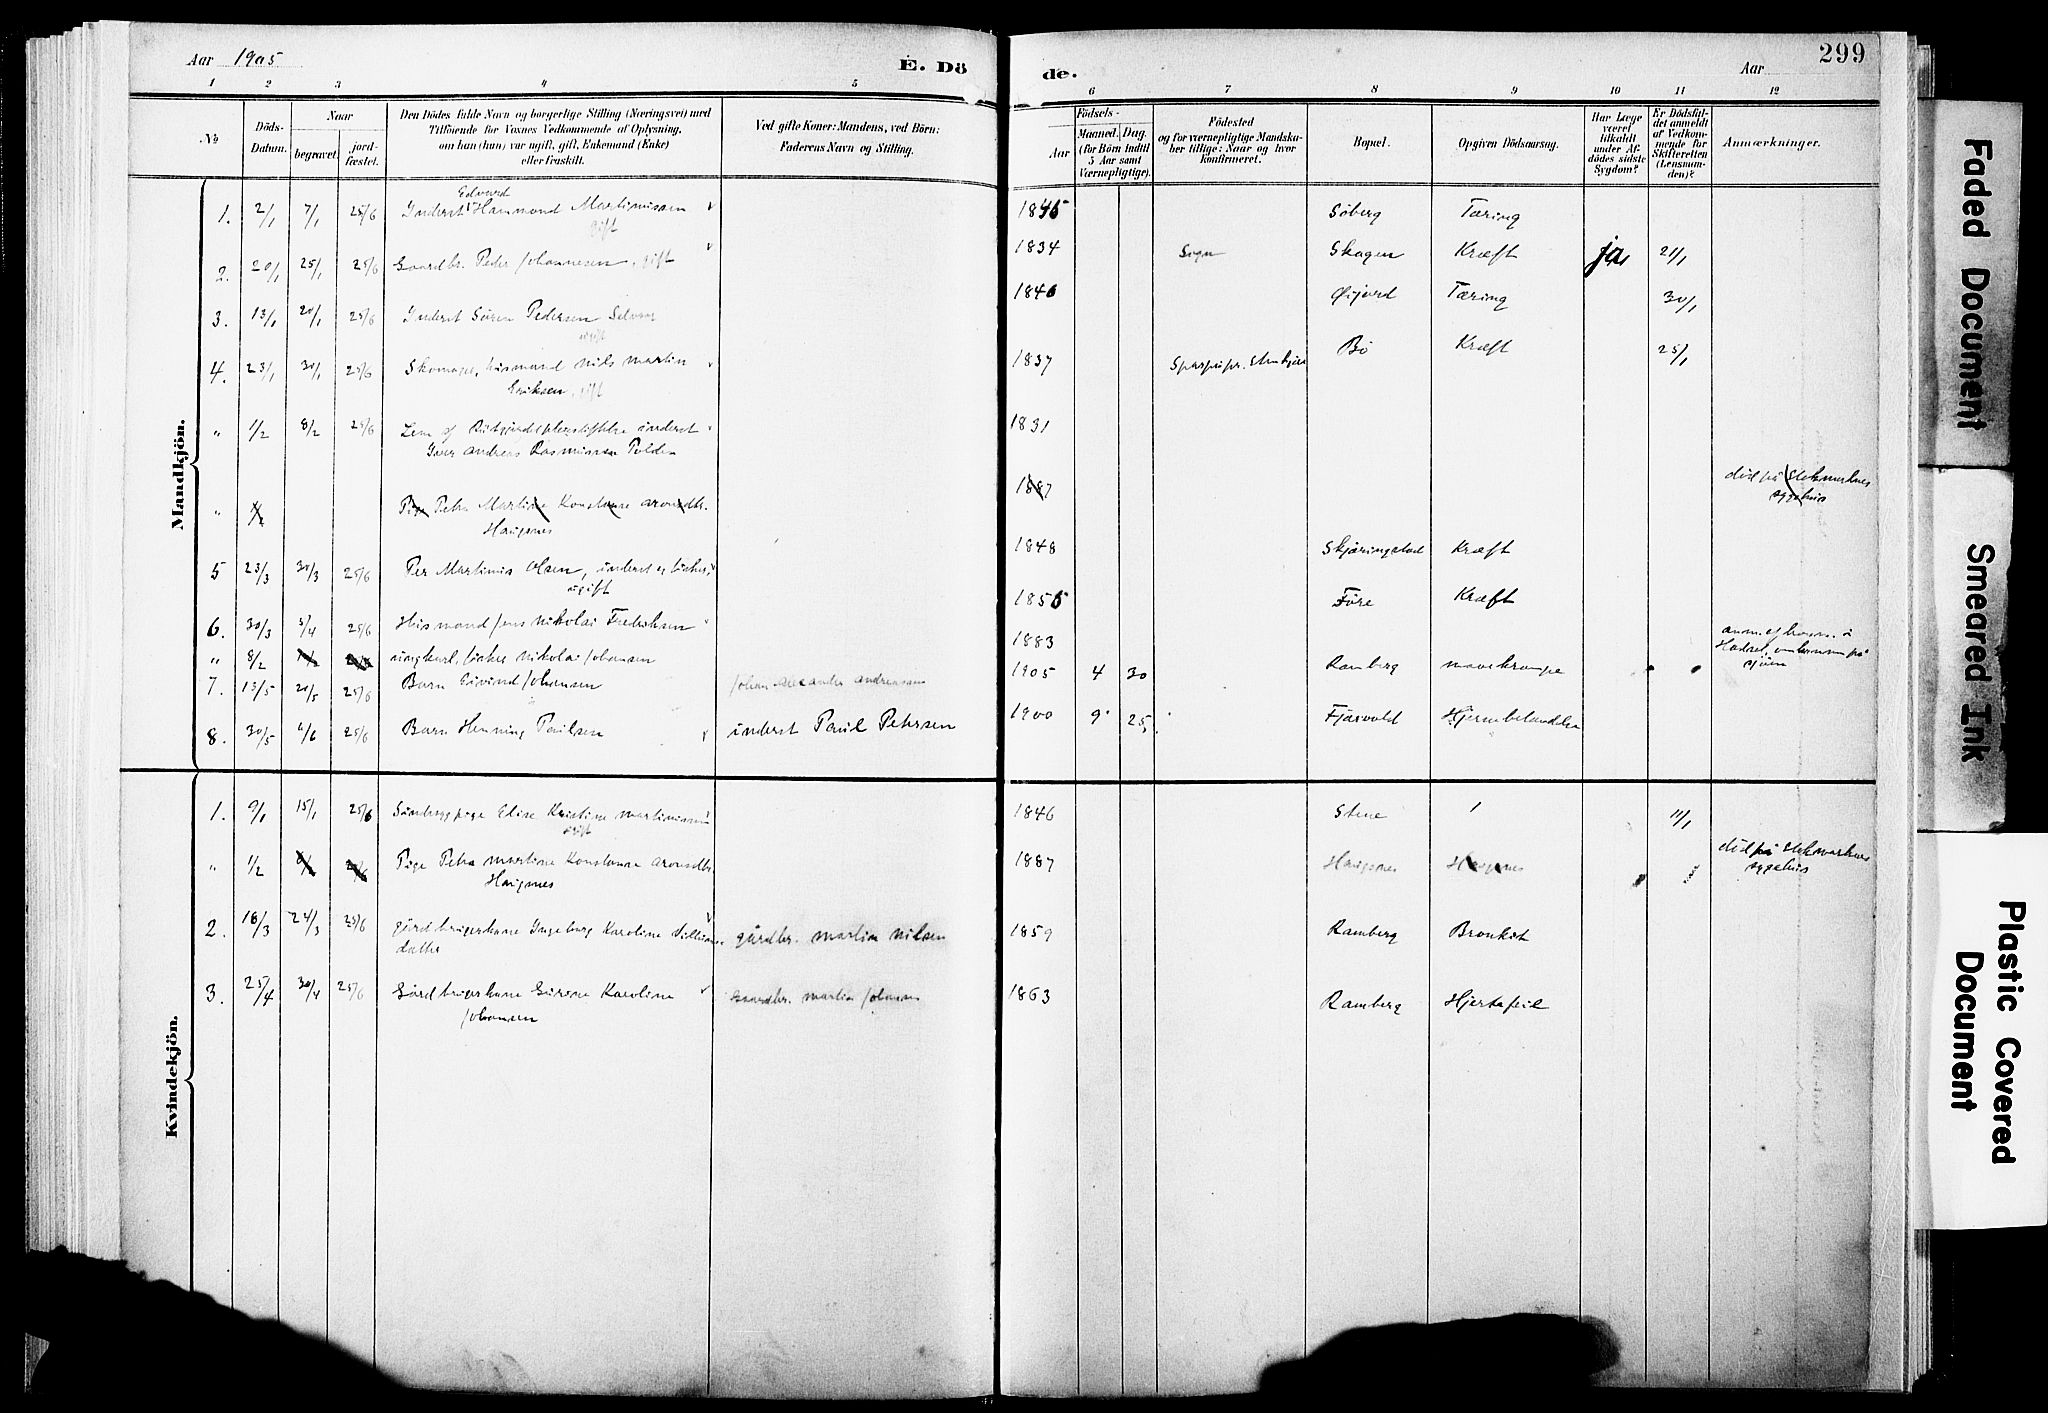 Aar 1905
E. Dö
de.
Aar
299
1 2 3 4 5 6 7 8 9 10 11 12
№
Döds-
Datum.
Naar
begravet.
jord-
fæstet.
Den Dödes fulde Navn og borgerlige Stilling (Næringsvei) med
Tilföiende for Voxnes Vedkommende af Oplysning,
om han (hun) var ugift, gift, Enkemand (Enke)
eller fraskilt.
Ved gifte Koner: Mandens, ved Börn:
Faderens Navn og Stilling.
Födsels-
Aar
Maaned. Dag.
(for Börn indtil
5 Aar samt
Værnepligtige).
Födested
og for værnepligtige Mandska-
ber tillige: Naar og hvor
konfirmeret.
Bopæl.
Opgiven Dödsaarsag.
Har Læge
været
tilkaldt
under Af-
dödes sidste
Sygdom?
Er Dödsfal-
det anmeldt
af Vedkom-
mende for
Skifteretten
(Lensman-
den)?
Anmærkninger.
Mandkjön.
Edvard
1. 2/1 7/1 25/6 Inderst Hammond Martinussen 1845 Søberg Tæring
gift
2. 20/1 25/1 25/6 Gaardbr. Peder Johannesen, gift 1834 Sogn Skagen Kræft ja, 21/1
3. 13/1 20/1 25/6 Inderst Søren Pedersen 1846 Øijord Tæring 30/1
ugift
4. 23/1 30/1 25/6 Skomager, husmand Nils Martin 1837 Bø Kræft 25/1
Eriksen, gift
" 1/2 8/2 25/6 Lem af inderst 1831
Andreas Rasmussen Polden
" 1/2 Pige Petra Martine Konstanse Aronsdtr. 1887 död på Stokmarknes
Haugsnes sygehus
5 23/3 30/3 25/6 Per Martinus Olsen, inderst og fisker, 1848 Skjæringstad Kræft
ugift
6. 30/3 5/4 25/6 Husmand Jens Nikolai Fredriksen 1855 Føre Kræft
" 8/2 ungkarl, fisker Nikolai Johansen 1883
Hadsel, omkommen på
sjøen
7. 13/5 20/5 25/6 Barn Eivind Johansen Johan Alexander Andreassen 1905 4 30 Ramberg mavekrampe
8. 30/5 6/6 25/6 Barn Henning Paulsen inderst Paul Petersen 1900 9 25 Fjærvold Hjernebetændelse
Kvindekjön.
1. 9/1 15/1 25/6 Elise Kristine Martinussen 1846 Stene 11/1
ugift
" 1/2 Pige Petra Martine Konstanse Aronsdtr. 1887 Haugsnes Haugsnes död på Stokmarknes
Haugsnes sygehus
2. 18/3 24/3 25/6 gårdbrugerkone Ingeborg Karoline gårdbr. Martin Nilsen 1859 Ramberg Bronkit
datter
3. 25/4 30/4 25/6 Gårdbrugerkone Karoline Gaardbr. Martin Johansen 1863 Ramberg Hjertefeil
Johansen
Faded Document
Smeared Ink
Plastic Covered
Document